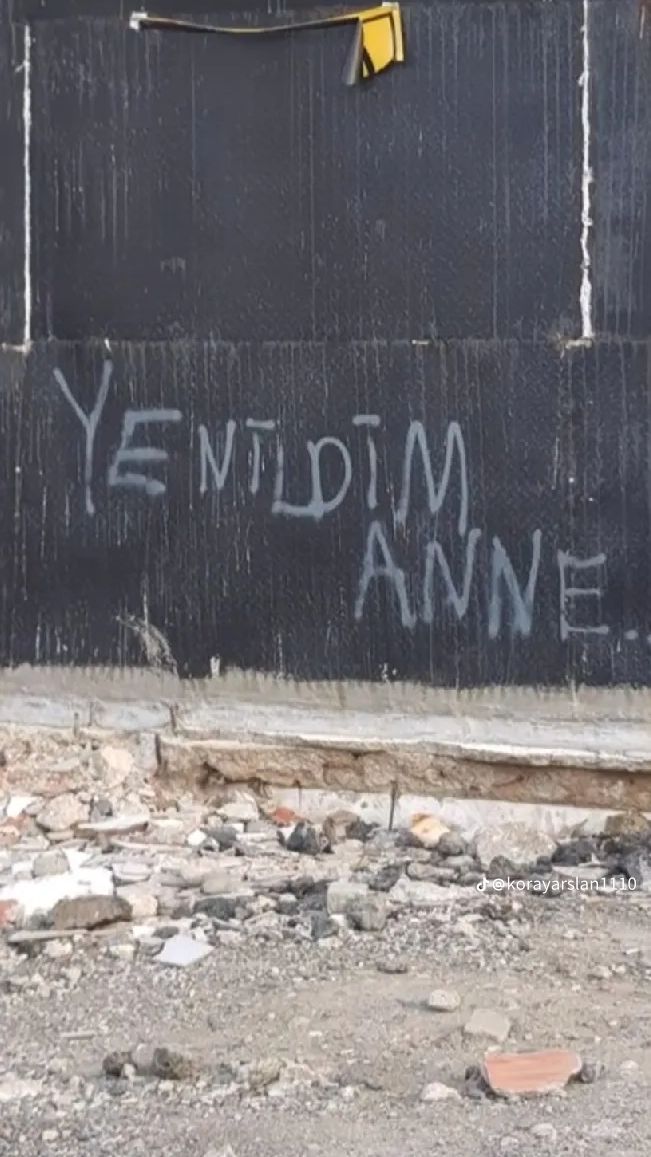 YENİLDİM
ANNE..
@korayarslan1110